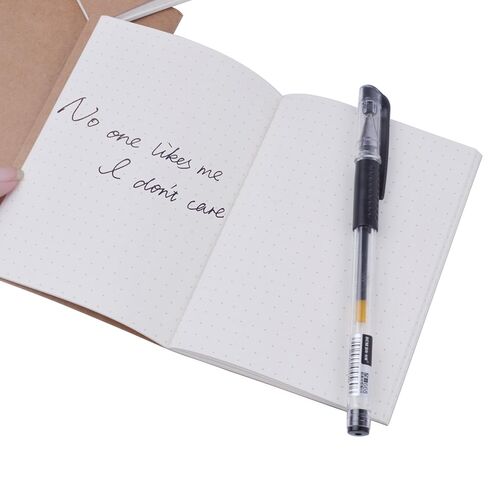 No one likes me
I don't care